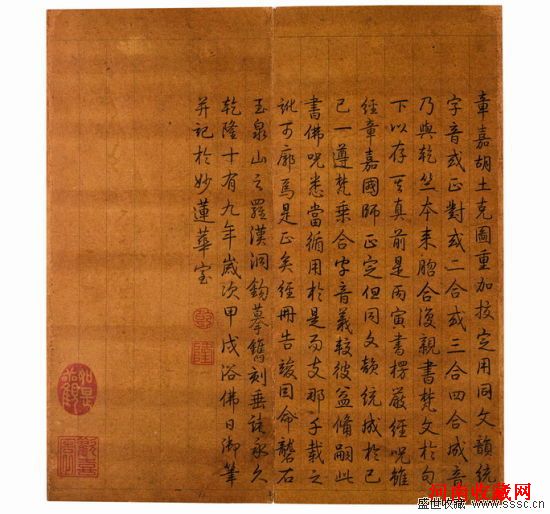 章嘉胡土克圖重加挍定用同文韻統
字音或正對或二合或三合四合成音
乃與乾竺本来脗合復親書梵文於句
下以存其真前是丙寅書楞嚴經呪雖
經章嘉國師正定但同文韻統成於己
巳一遵梵乗合字音義較彼益脩嗣此
書佛呪悉當循用於是而支那千載之
訛可廓焉是正矣經冊告竣因命礱石
玉泉山之羅漢洞鈎摹鐫刻垂誌永久
乾隆十有九年歲次甲戌浴佛日御筆
并記於妙蓮華室
乾
隆
河南收藏网
盛世收藏 www.sssc.cn